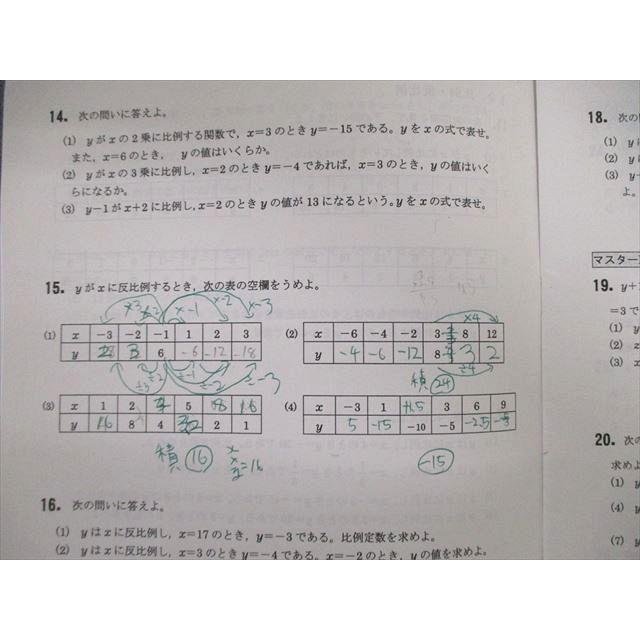 14. 次の問いに答えよ。
(1) yがxの2乗に比例する関数で，x=3のときy=−15である。yをxの式で表せ。
また，x=6のとき， yの値はいくらか。
(2) yがxの3乗に比例し，x=2のときy=−4であれば，x=3のとき，yの値はいく
らになるか。
(3) y−1がx+2に比例し，x=2のときyの値が13になるという。yをxの式で表せ。
15. yがxに反比例するとき，次の表の空欄をうめよ。
×-1 ×-2 ×-3
(1) x −3 −2 −1 1 2 3
y 2 3 6 -6 -12 -18
÷3 ÷2 ÷-1 ÷-2 ÷-3
×4
(2) x −6 −4 −2 3 8 12
y -4 -6 -12 8 3 2
÷4
積 24
(3) x 1 2 4 5 8 16
y 16 8 4 2 1
積 16
(4) x −3 1 1.5 3 6 9
y 5 -15 −10 −5 -2.5
-15
16. 次の問いに答えよ。
(1) yはxに反比例し，x=17のとき，y=−3である。比例定数を求めよ。
(2) yはxに反比例し，x=3のときy=−4である。x=−2のとき，yの値を求めよ。
18. 次の
(1) y
(2) y
(3) y
よ。
マスター
19. y+
=3で
(1) x
(2) z
(3) x
20. 次の
求めよ
(1) y
(4) y
(7) y